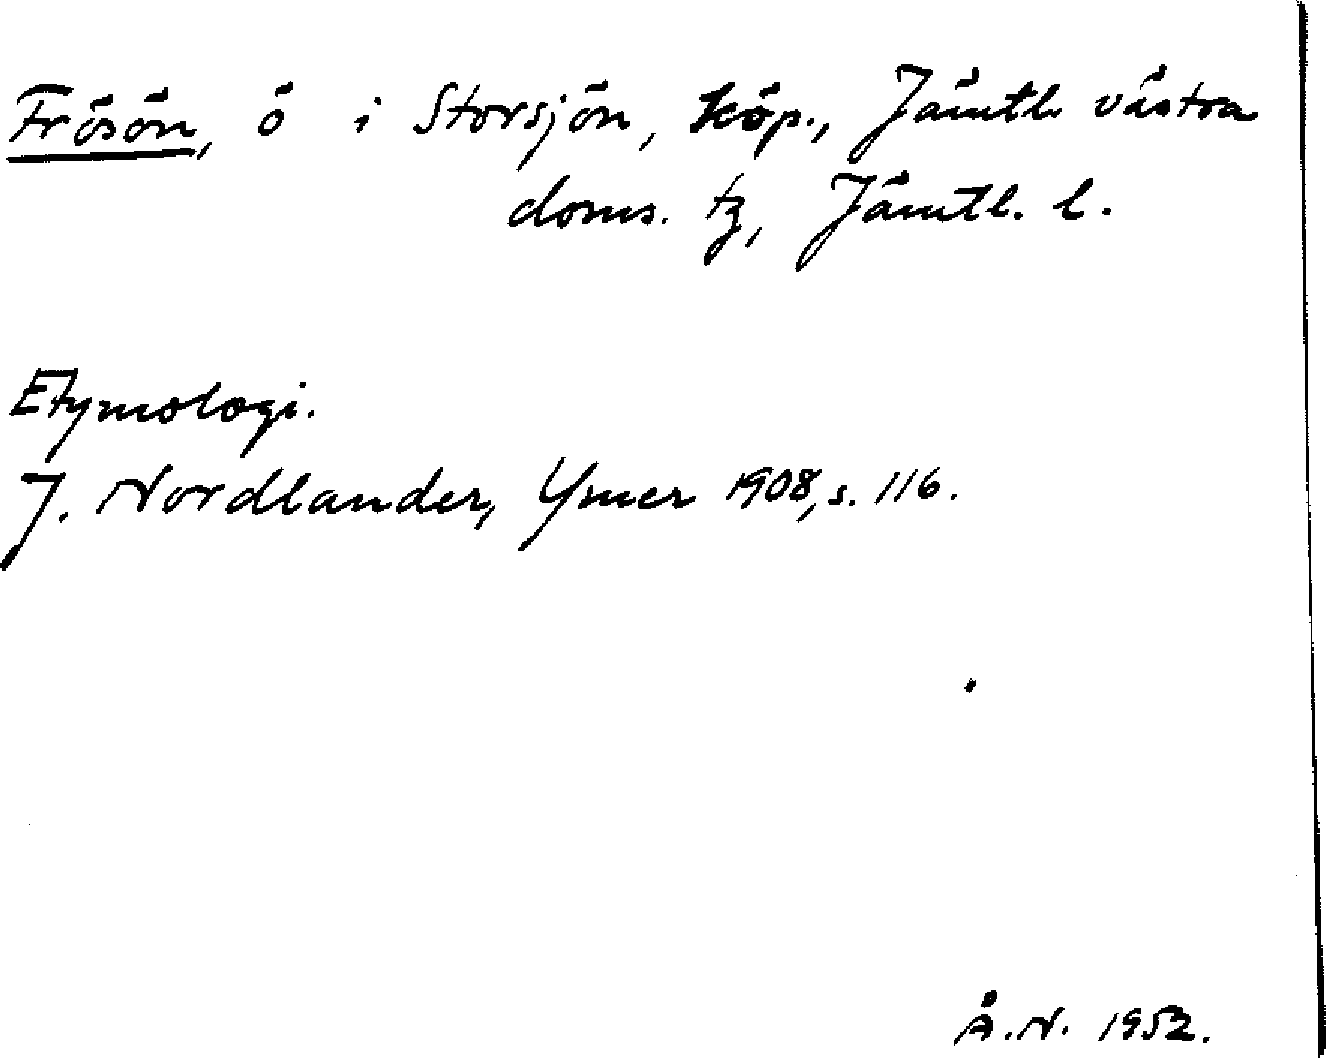 Frösön, ö i Storsjön, köp., Jämtl. västra
doms. tg, Jämtl. l.
Etymologi.
J. Nordlander, Ymer 1908, s. 116.
Å.N. 1952.